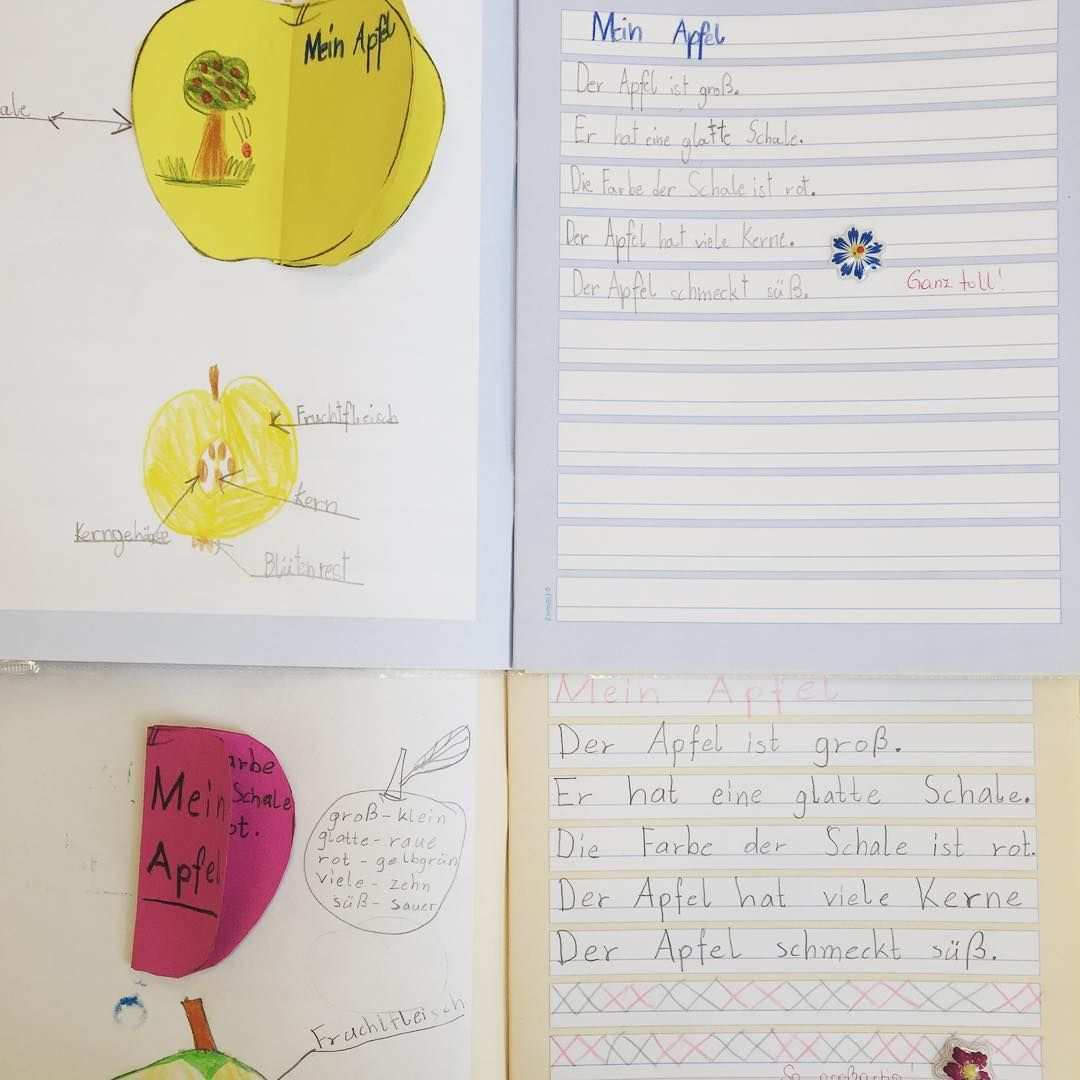 Mein Apfel
Fruchtfleisch
Kern
Kerngehäuse
Blütenrest
Mein Apfel
Der Apfel ist groß.
Er hat eine glatte Schale.
Die Farbe der Schale ist rot.
Der Apfel hat viele Kerne.
Der Apfel schmeckt süß.
Ganz toll!
Mein
Apfel
Schale
groß - klein
glatte - raue
rot - gelbgrün
viele - zehn
süß - sauer
Fruchtfleisch
Mein Apfel
Der Apfel ist groß.
Er hat eine glatte Schale.
Die Farbe der Schale ist rot.
Der Apfel hat viele Kerne
Der Apfel schmeckt süß.